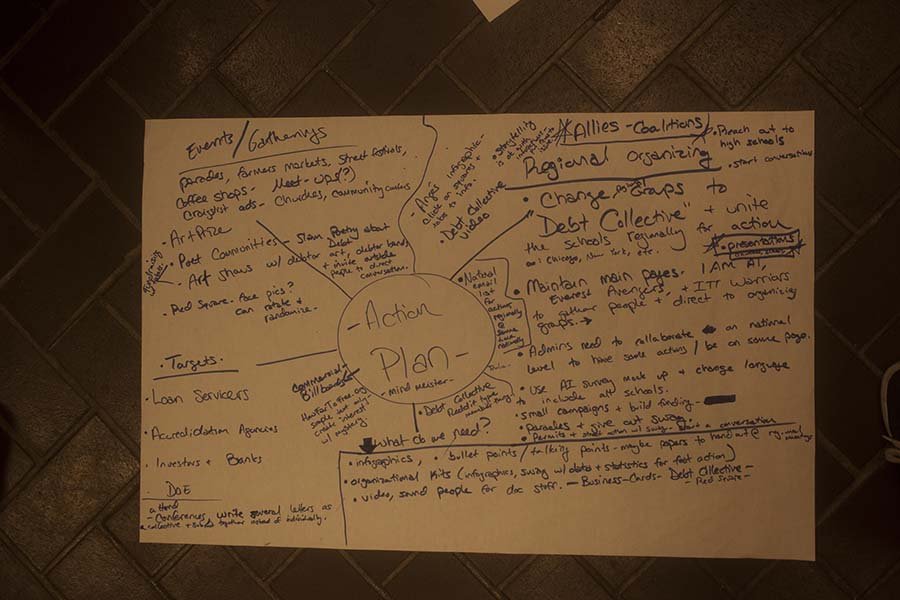 Events / Gatherings
parades, farmers markets, street festivals,
Coffee shops - Meet-ups(?)
Craigslist ads - Churches, community centers
- ArtPrize
- Poet Communities - Slam Poetry about
Debt
- Art shows w/ debtor art, debtor band,
+ invite outside
people to direct
conversation.
- Red Square - Face pics?
can rotate &
randomize -
Targets:
· Loan Servicers
· Accreditation Agencies
· Investors + Banks
· DOE
attend
- Conferences, write several letters as
a collective + submit together instead of individually.
- Action
Plan -
- mind meister -
- Ange's infographic -
click on squares +
takes to info.
· Debt Collective
video
· Storytelling
Allies - Coalitions
· Reach out to
high schools
· start conversations
Regional Organizing
· Change groups to
"Debt Collective" + unite
the schools regionally for action
Chicago, New York, etc.
· presentations
· Maintain main pages. I AM AI,
Everest Avengers, + ITT Warriors
to gather people + direct to organizing
groups.
· National
email
list
for
actions
regionally
@
same
time
nationally
· Admins need to collaborate on national
level to have same actions / be on same page.
· Use AI survey mock up + change language
to include all schools.
· small campaigns + build funding -
· Parades + give out swag.
· Permits + swag start a conversation
Commercial -
Billboards
simple but
create interest
w/ mystery.
· Debt Collective
Reddit type
What do we need?
· infographics, · bullet points / talking points - maybe papers to hand out @ reg. mtgs/
meetings
· organizational kits (infographics, swag w/ data + statistics for fast action)
· video, sound people for doc stuff. - Business-Cards - Debt Collective -
- Red Square -